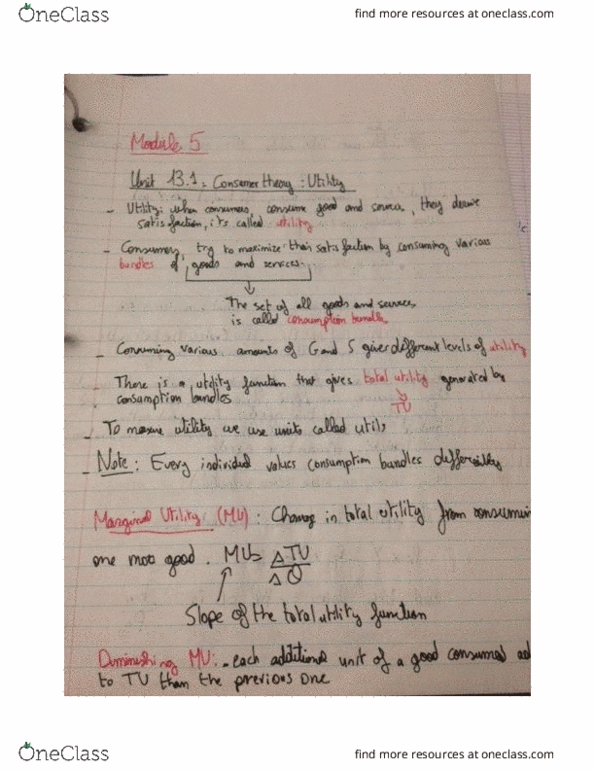 OneClass
find more resources at oneclass.com
Module 5
Unit 13.1: Consumer theory: Utility
- Utility: when consumers, consume good and services, they derive
satisfaction, it's called utility
- Consumers, try to maximize their satisfaction by consuming various
bundles of goods and services.
The set of all goods and services
is called consumption bundles
- Consuming various amounts of G and S gives different levels of utility
- There is a utility function that gives total utility generated by
consumption bundles
TU
- To measure utility we use units called utils
- Note: Every individual values consumption bundles differently
Marginal Utility (MU): Change in total utility from consumin
one more good. MU= ΔTU
ΔQ
Slope of the total utility function
Diminishing MU: - each additional unit of a good consumed ad
to TU than the previous one
OneClass
find more resources at oneclass.com